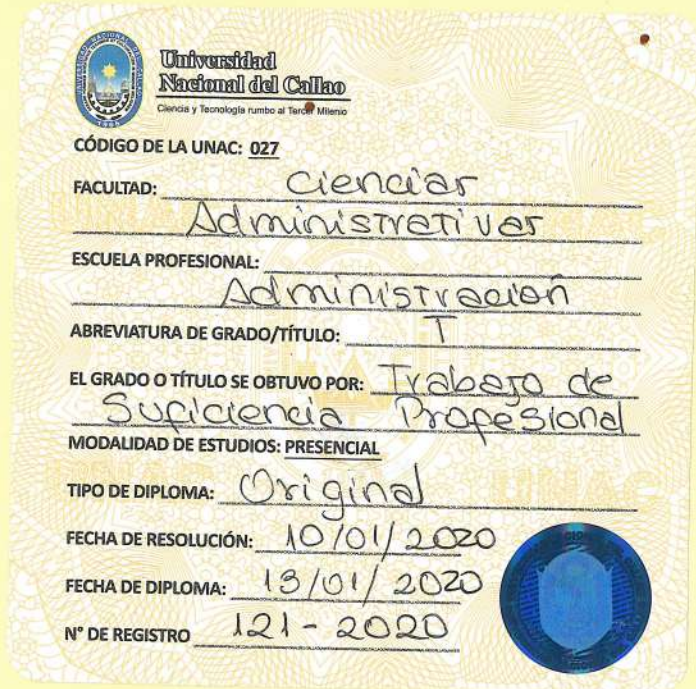 Universidad
Nacional del Callao
Ciencia y Tecnología rumbo al Tercer Milenio
CÓDIGO DE LA UNAC: 027
FACULTAD: Ciencias
Administrativas
ESCUELA PROFESIONAL:
Administración
ABREVIATURA DE GRADO/TÍTULO: T
EL GRADO O TÍTULO SE OBTUVO POR: Trabajo de
Suficiencia Profesional
MODALIDAD DE ESTUDIOS: PRESENCIAL
TIPO DE DIPLOMA: Original
FECHA DE RESOLUCIÓN: 10/01/2020
FECHA DE DIPLOMA: 13/01/2020
N° DE REGISTRO 121-2020